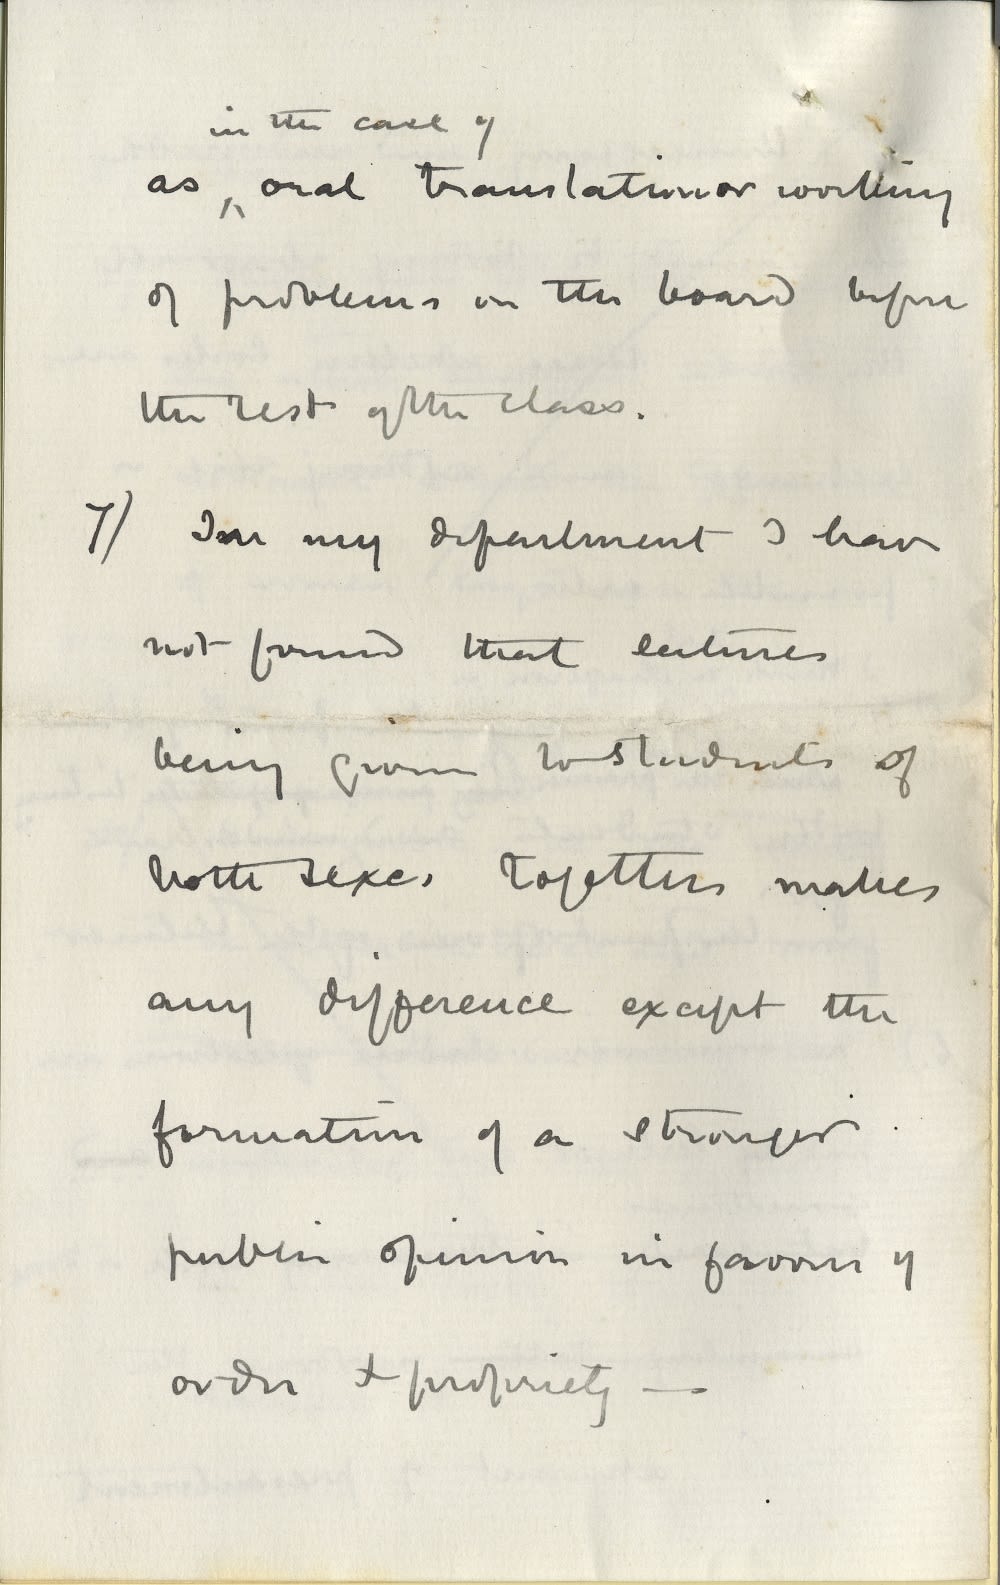 in the case of
as ^ oral translation or working
of problems on the board before
the rest of the class.
7) In my department I have
not found that lectures
being given to students of
both sexes together makes
any difference except the
formation of a stronger
public opinion in favour of
order & propriety —